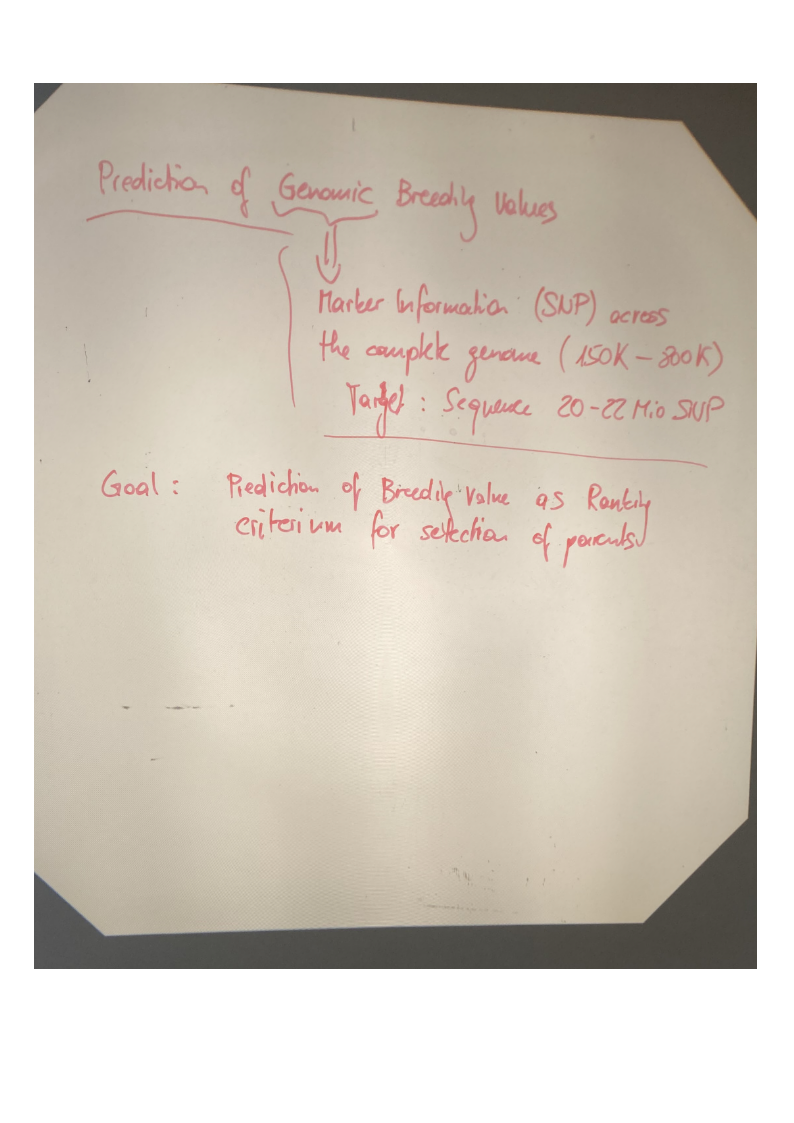 Prediction of Genomic Breeding Values
Marker Information (SNP) across
the complete genome (150K - 800K)
Target : Sequence 20-22 Mio SNP
Goal : Prediction of Breeding Value as Ranking
criterium for selection of parents